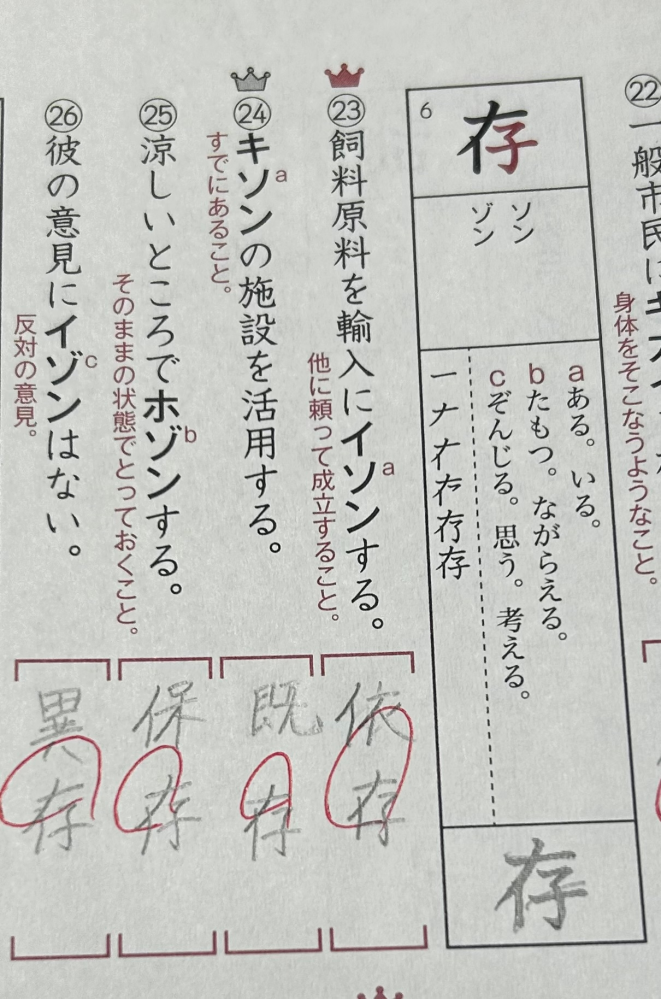 ㉒一般市民に
身体をそこなうようなこと。
存
6
ソン
ゾン
aある。いる。
bたもつ。ながらえる。
cぞんじる。思う。考える。
一ナイ存存存
存
㉓飼料原料を輸入にイソンする。
a
他に頼って成立すること。
依存
㉔キソンの施設を活用する。
a
すでにあること。
既存
㉕涼しいところでホゾンする。
b
そのままの状態でとっておくこと。
保存
㉖彼の意見にイゾンはない。
c
反対の意見。
異存